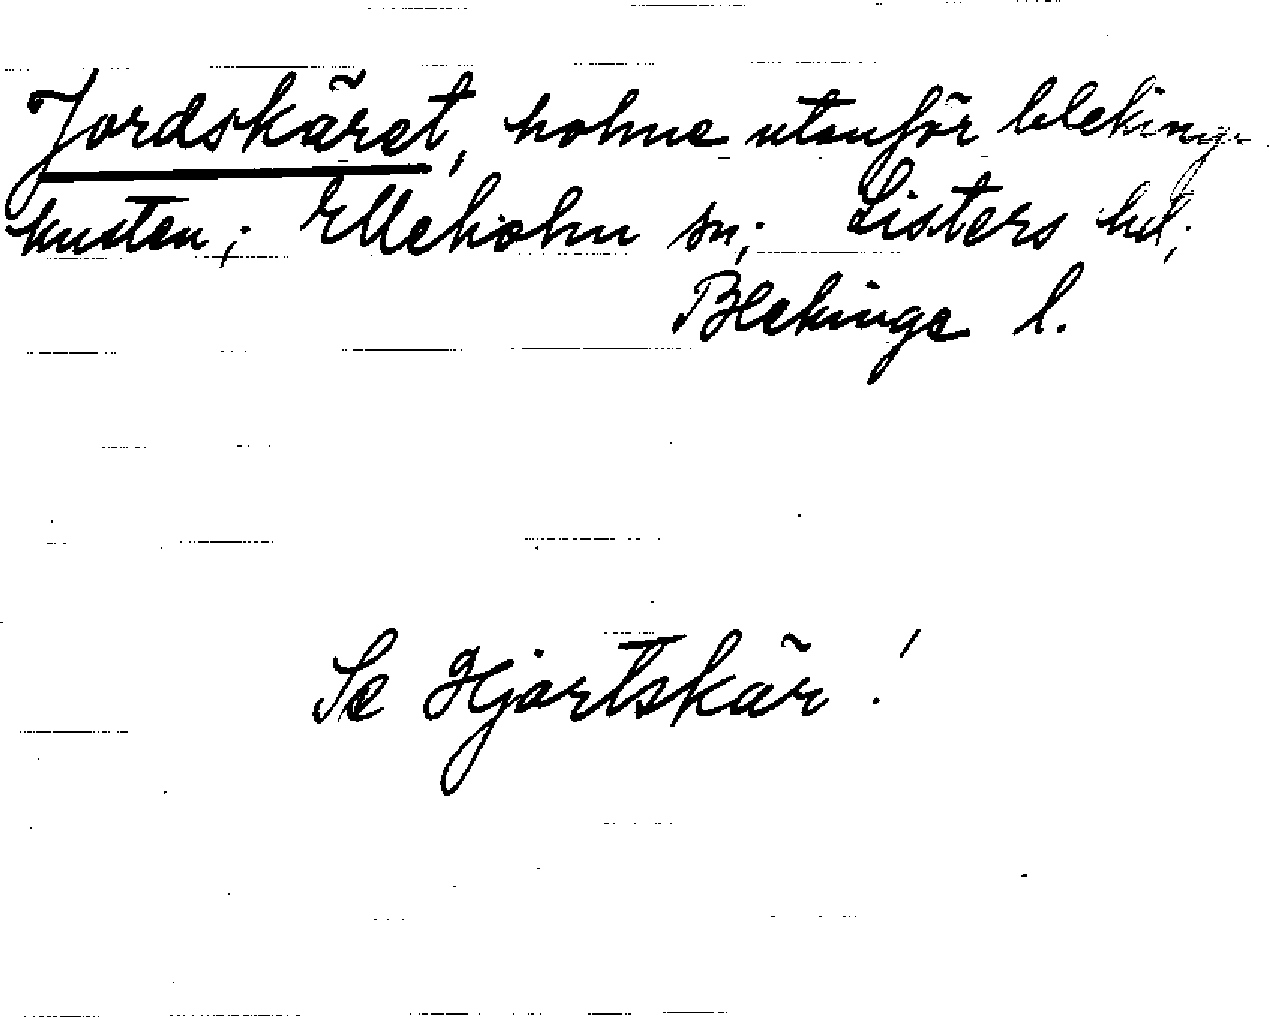 Jordskäret, holme utanför bleking-
kusten; Elleholm sn; Listers hd;
Blekinge l.
Se Hjortskär!